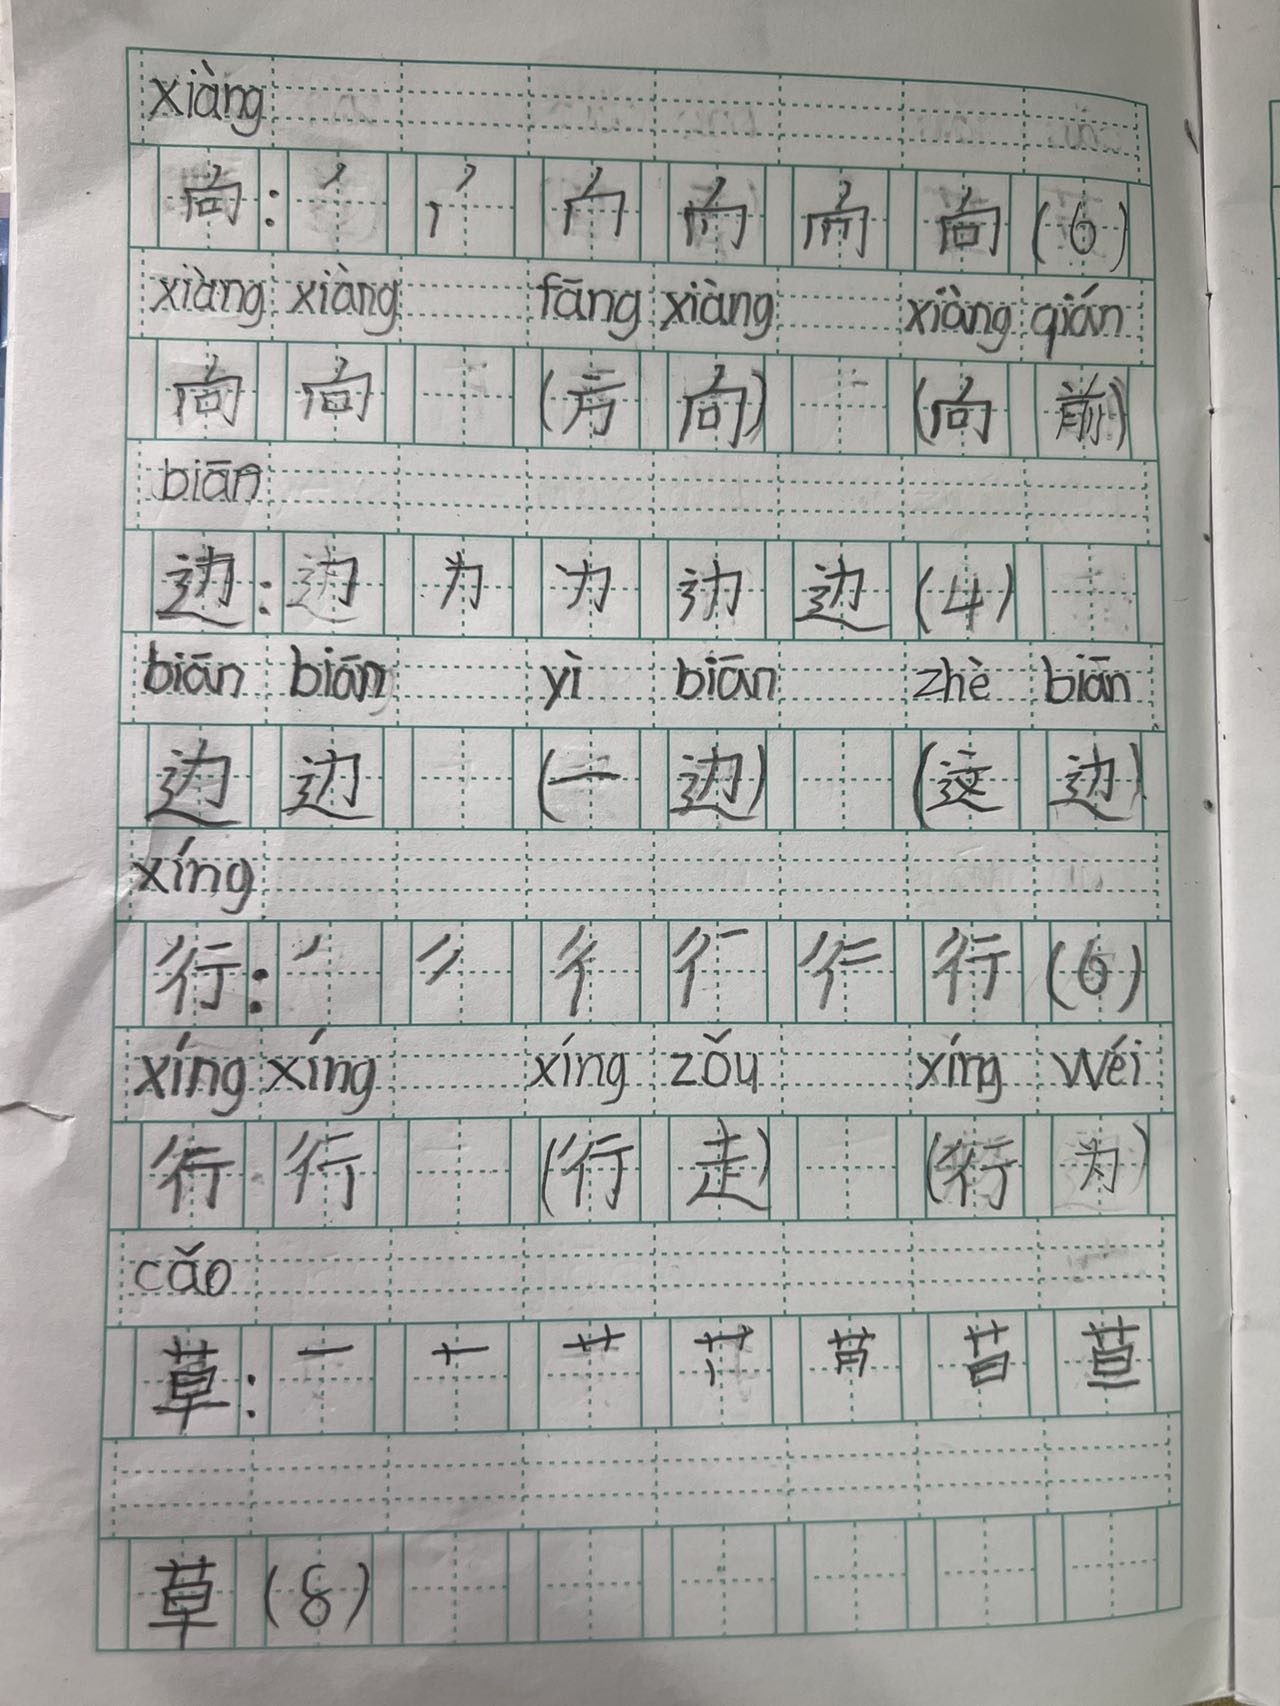 xiàng
向: 丿 丨 向 向 向 向 (6)
xiàng xiàng fāng xiàng xiàng qián
向 向 (方 向) (向 前)
biān
边: 边 力 力 边 边 (4)
biān biān yì biān zhè biān
边 边 (一 边) (这 边)
xíng
行: 丿 彳 行 (6)
xíng xíng xíng zǒu xíng wéi
行 行 (行 走) (行 为)
cǎo
草: 一 十 艹 苜 昔 苴
草 (8)